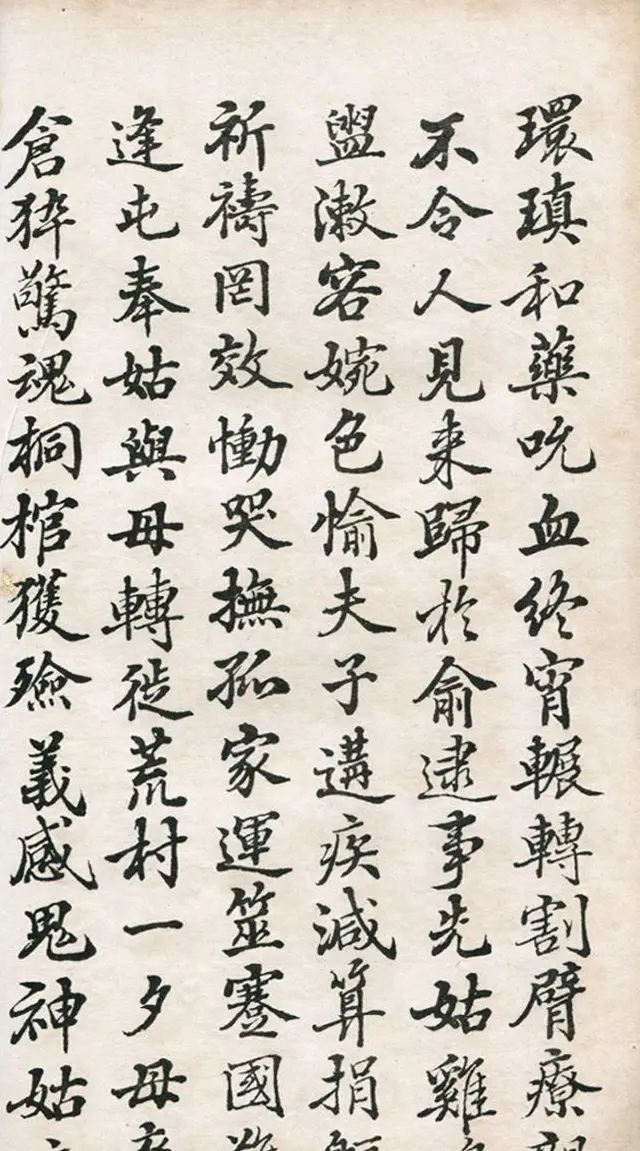 環瑱和藥吮血終宵輾轉割臂療親
不令人見来歸於俞逮事先姑雞
盥漱容婉色愉夫子遘疾減算捐
祈禱罔效慟哭撫孤家運筮蹇國難
逢屯奉姑與母轉徙荒村一夕母
倉猝驚魂桐棺獲殮義感鬼神姑